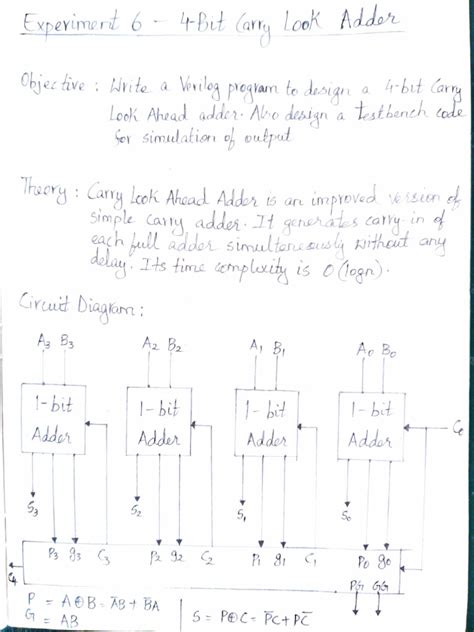 Experiment 6 - 4-Bit Carry Look Adder
Objective : Write a Verilog program to design a 4-bit Carry
Look Ahead adder. Also design a testbench code
for simulation of output
Theory : Carry Look Ahead Adder is an improved version of
simple carry adder. It generates carry-in of
each full adder simultaneously without any
delay. Its time complexity is O(logn).
Circuit Diagram :
A3 B3 A2 B2 A1 B1 A0 B0
1-bit Adder 1-bit Adder 1-bit Adder 1-bit Adder
S3 S2 S1 S0
P3 g3 C3 P2 g2 C2 P1 g1 C1 P0 g0
C4 PG GG
P = A⊕B = A̅B + B̅A
G = AB
S = P⊕C = P̅C + PC̅